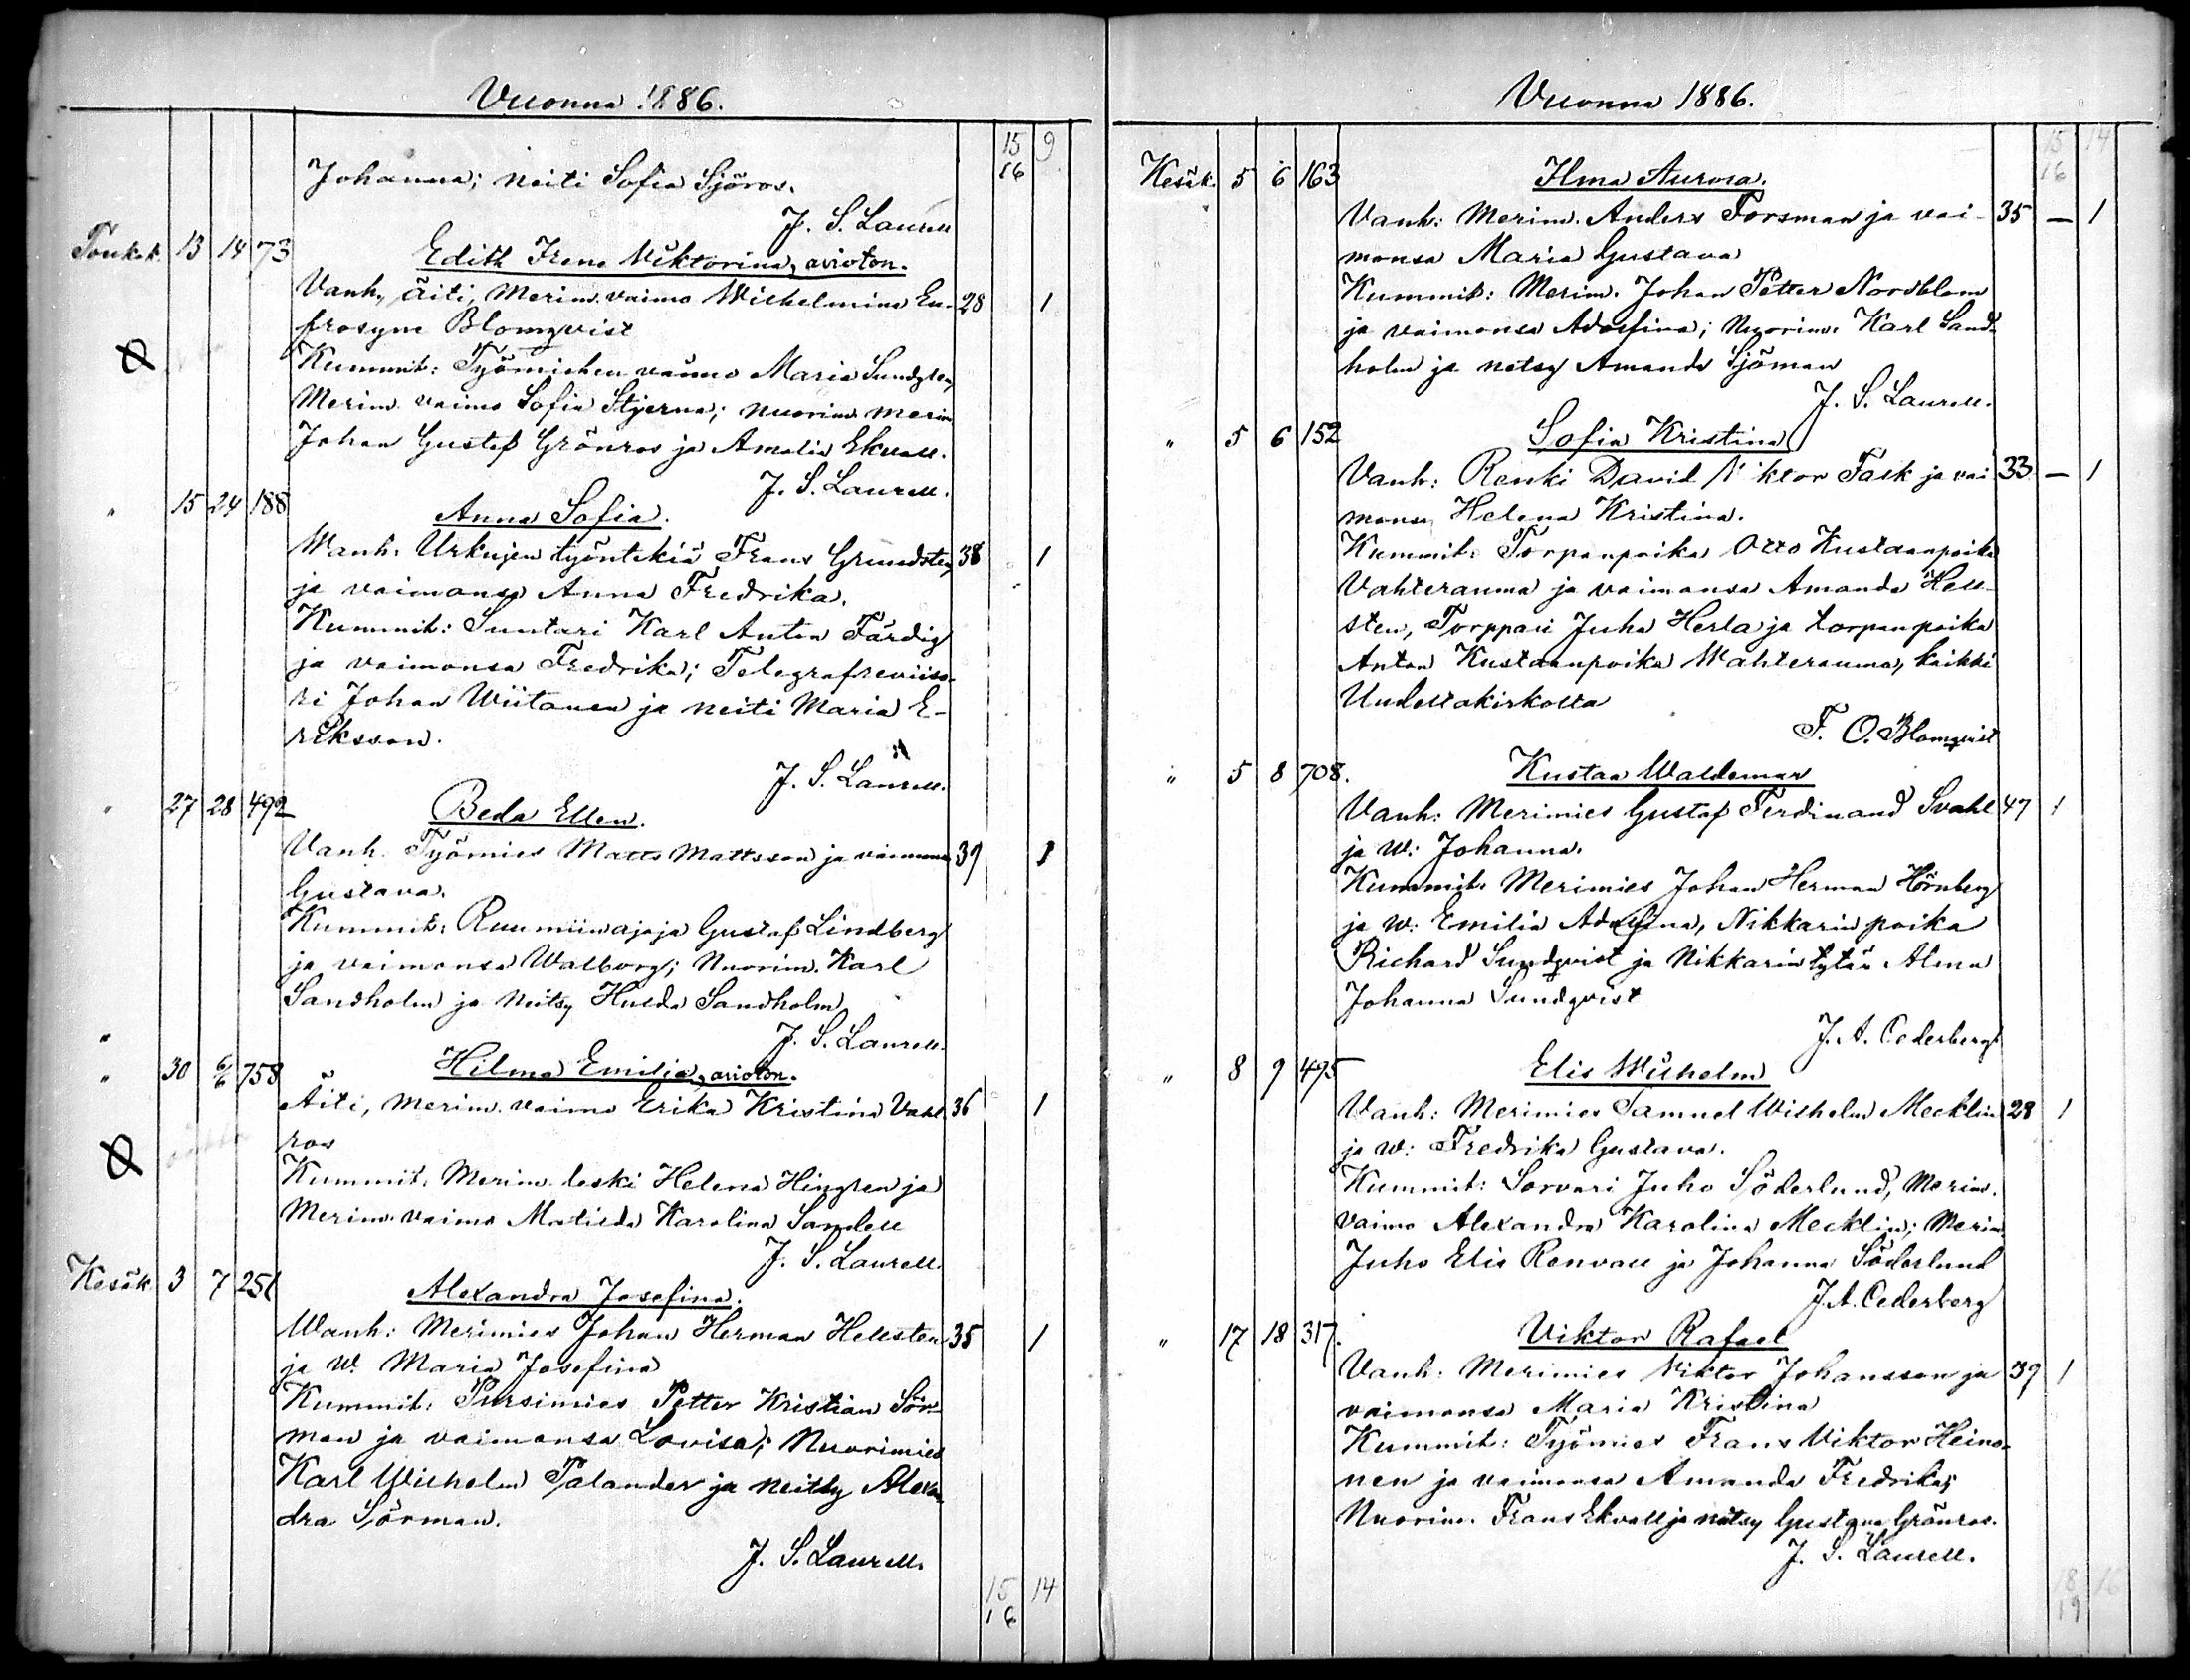 Vuonna 1886.
15 9
16
Johanna; neiti Sofia Sjöros.
J. S. Laurell
Toukok. 13 14 73 Edith Irene Viktorina, avioton.
Vanh, äiti, Merim. vaimo Wilhelmina Eu- 28 1
frosyne Blomqvist
Kummit: Työmiehen vaimo Maria Sundgren,
Merim. vaimo Sofia Stjerna; nuorim. merim
Johan Gustaf Grönros ja Amalia Ekvall.
J. S. Laurell.
" 15 24 188 Anna Sofia.
Wanh: Urkujen työntekiä Frans Grundsten 38 1
ja vaimonsa Anna Fredrika.
Kummit: Suutari Karl Anton Färdig
ja vaimonsa Fredrika; Telegrafreviiso-
ri Johan Wiitanen ja neiti Maria E-
riksson.
J. S. Laurell.
" 27 28 492 Beda Ellen.
Vanh. Työmies Matts Mattsson ja vaimonsa 39 1
Gustava.
Kummit: Ruumiinajaja Gustaf Lindberg
ja vaimonsa Walborg; Nuorim. Karl
Sandholm ja Neitsy Hulda Sandholm
J. S. Laurell.
" 30 6/6 758 Hilma Emilia, avioton.
Äiti, merim. vaimo Erika Kristina Vahl- 36 1
ros
Kummit. Merim. leski Helena Hingren ja
Merim. vaimo Matilda Karolina Sandell
J. S. Laurell.
Kesäk. 3 7 251 Alexandra Josefina.
Wanh: Merimies Johan Herman Hellsten 35 1
ja W. Maria Josefina
Kummit: Pursimies Petter Kristian Sör-
man ja vaimonsa Lovisa; Nuorimies
Karl Wilhelm Palander ja neitsy Alexan-
dra Sörman.
J. S. Laurell.
15 14
16
Vuonna 1886.
15 14
16
Kesäk. 5 6 163 Ilma Aurora.
Vanh: Merim. Anders Forsman ja vai- 35 — 1
monsa Maria Gustava
Kummit: Merim. Johan Petter Nordblom
ja vaimonsa Adolfina; Nuorim. Karl Sand-
holm ja neitsy Amanda Sjöman
J. S. Laurell.
" 5 6 152 Sofia Kristina
Vanh: Renki David Viktor Falk ja vai 33 — 1
monsa Helena Kristina.
Kummit: Torpanpoika Otto Kustaanpoika
Vahterauma ja vaimonsa Amanda Hell-
sten, Torppari Juha Herla ja torpanpoika
Anton Kustaanpoika Wahterauma, kaikki
Uudeltakirkolta
F. O. Blomqvist
" 5 8 708. Kustaa Waldemar
Vanh: Merimies Gustaf Ferdinand Svahl 47 1
ja W: Johanna.
Kummit: Merimies Johan Herman Hörnberg
ja W: Emilia Adolfina, Nikkarin poika
Richard Sundqvist ja Nikkarin tytär Alma
Johanna Sundqvist
J. A. Cederberg
" 8 9 495 Elis Wilhelm
Vanh: Merimies Samuel Wilhelm Mecklin 28 1
ja W: Fredrika Gustava.
Kummit: Sorvari Juho Söderlund, Merim.
vaimo Alexandra Karolina Mecklin; Merim.
Juho Elis Renvall ja Johanna Söderlund
J. A. Cederberg
" 17 18 317. Viktor Rafael
Vanh: Merimies Viktor Johansson ja 39 1
vaimonsa Maria Kristina
Kummit: Työmies Frans Viktor Heino-
nen ja vaimonsa Amanda Fredrika;
Nuorim. Frans Ekvall ja neitsy Gustava Grönros.
J. S. Laurell.
18 16
19